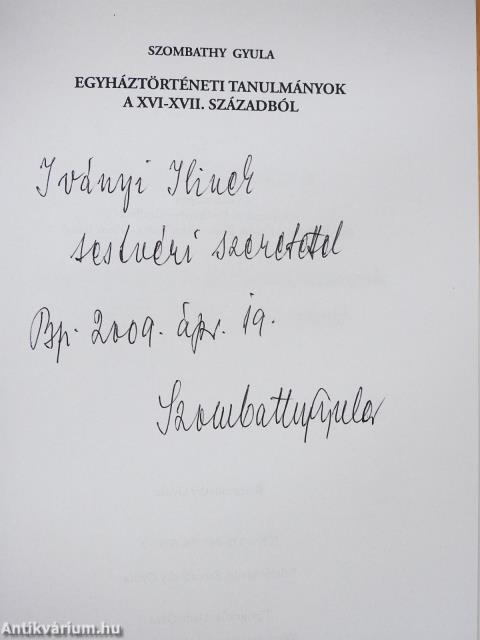 SZOMBATHY GYULA
EGYHÁZTÖRTÉNETI TANULMÁNYOK
A XVI-XVII. SZÁZADBÓL
Iványi Ilinek
testvéri szeretettel
Bp. 2009. ápr. 19.
Szombathy Gyula
Antikvárium.hu